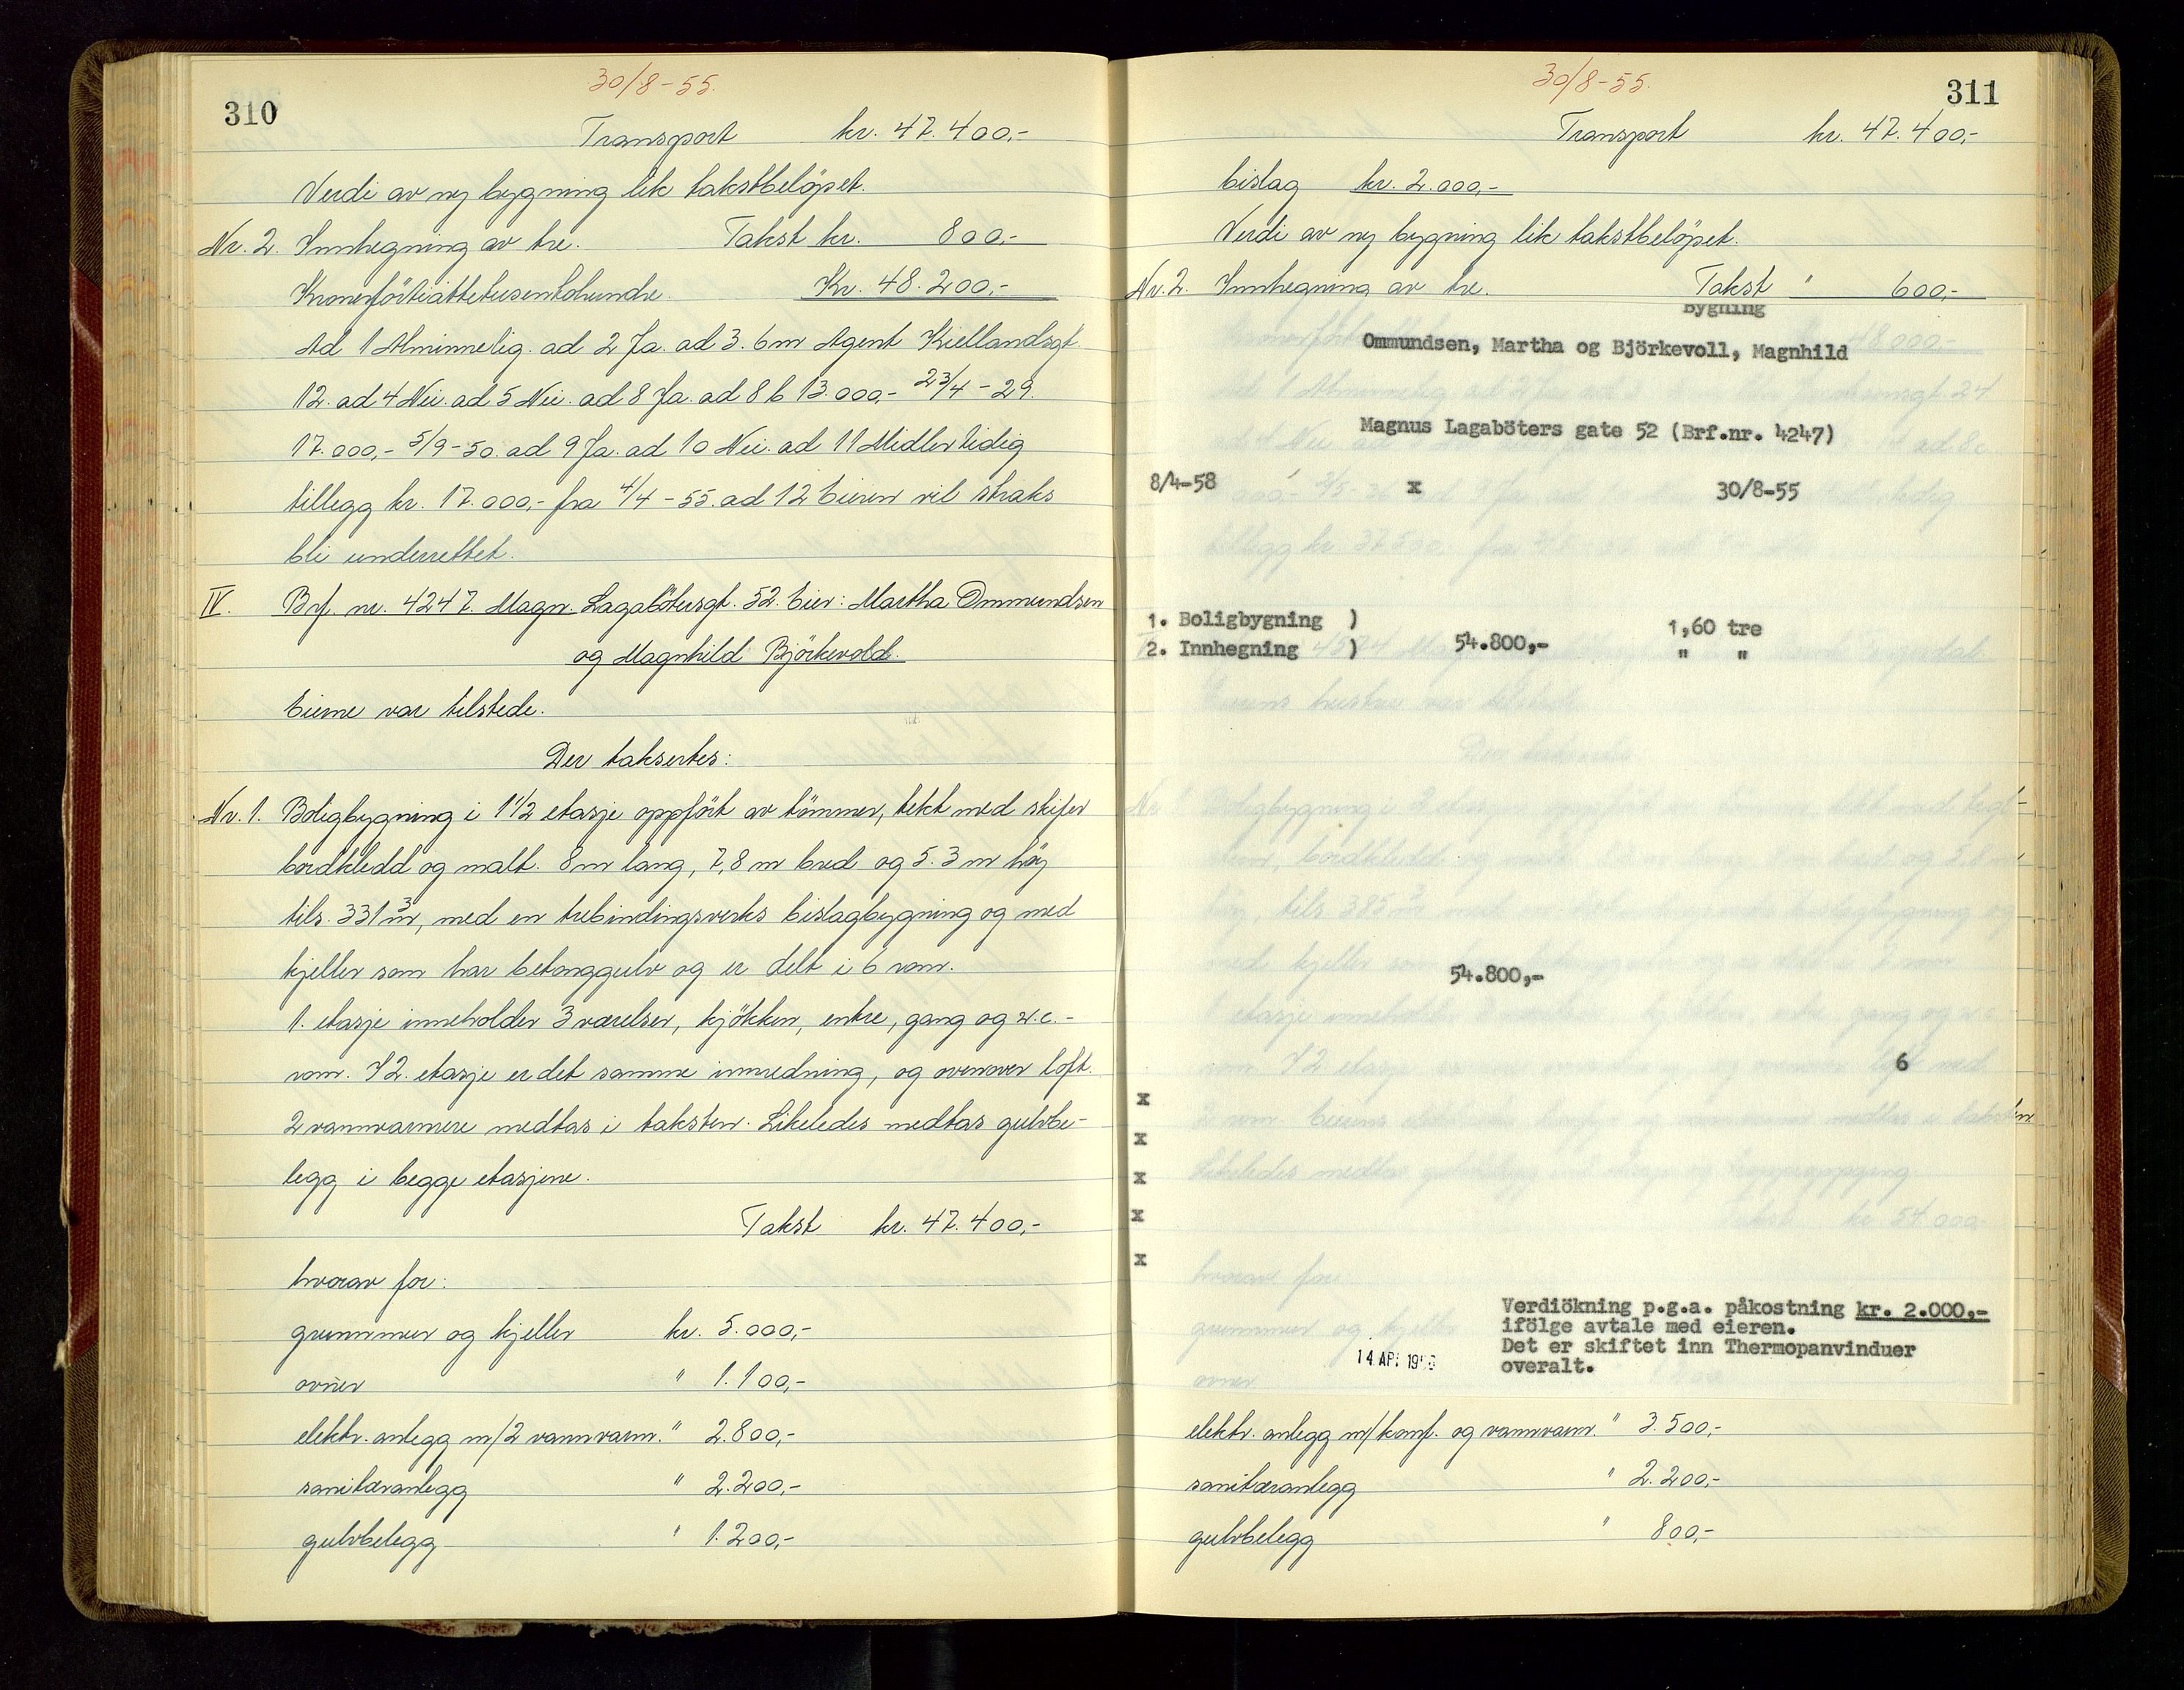 310
30/8-55.
Transport kr. 47.400,-
Verdi av ny bygning lik takstbelöpet.
Nr. 2. Innhegning av tre. Takst kr. 800,-
Kronerförtiåttetusentohundre. Kr. 48.200,-
Ad 1 Alminnelig. ad 2 Ja. ad 3. 6 m Agent Kiellandsgt.
12. ad 4 Nei. ad 5 Nei. ad 8 Ja. ad 8 b 13.000,- 23/4-29.
17.000,- 5/9-50. ad 9 Ja. ad 10 Nei. ad 11 Midlertidig
tillegg kr. 17.000,- fra 4/4-55. ad 12 Eieren vil straks
bli underrettet.
IV. Brf. nr. 4247. Magn. Lagabötersgt. 52. Eier: Martha Ommundsen
og Magnhild Björkevold.
Eierne var tilstede.
Der taksertes:
Nr. 1. Boligbygning i 1 1/2 etasje oppfört av tömmer, tekt med skifer
bordkledd og malt. 8 m lang, 7,8 m bred og 5.3 m höy
tils. 331 m3, med en trebindingsverks bislagbygning og med
kjeller som har betonggulv og er delt i 6 rom.
1. etasje inneholder 3 værelser, kjökken, entre, gang og w.c.-
rom. I 2. etasje er det samme innredning, og ovenover loft.
2 vannvarmere medtas i taksten. Likeledes medtas gulvbe-
legg i begge etasjene.
Takst kr. 47.400,-
hvorav for:
grunnmur og kjeller kr. 5.000,-
ovner " 1.100,-
elektr. anlegg m/2 vannvarm. " 2.800,-
sanitæranlegg " 2.200,-
gulvbelegg " 1.200,-
311
30/8-55.
Transport kr. 47.400,-
bislag kr. 2.000,-
Verdi av ny bygning lik takstbelöpet.
Nr. 2. Innhegning av tre. Takst " 600,-
bygning
Ommundsen, Martha og Björkevoll, Magnhild
Magnus Lagaböters gate 52 (Brf.nr. 4247)
8/4-58 x 30/8-55
1. Boligbygning ) 1,60 tre
2. Innhegning ) 54.800,- " "
54.800,-
6
x
x
x
x
x
Verdiökning p.g.a. påkostning kr. 2.000,-
ifölge avtale med eieren.
Det er skiftet inn Thermopanvinduer
overalt.
14 AP
elektr. anlegg m/komf. og vannvarm. " 3.500,-
sanitæranlegg " 2.200,-
gulvbelegg " 800,-